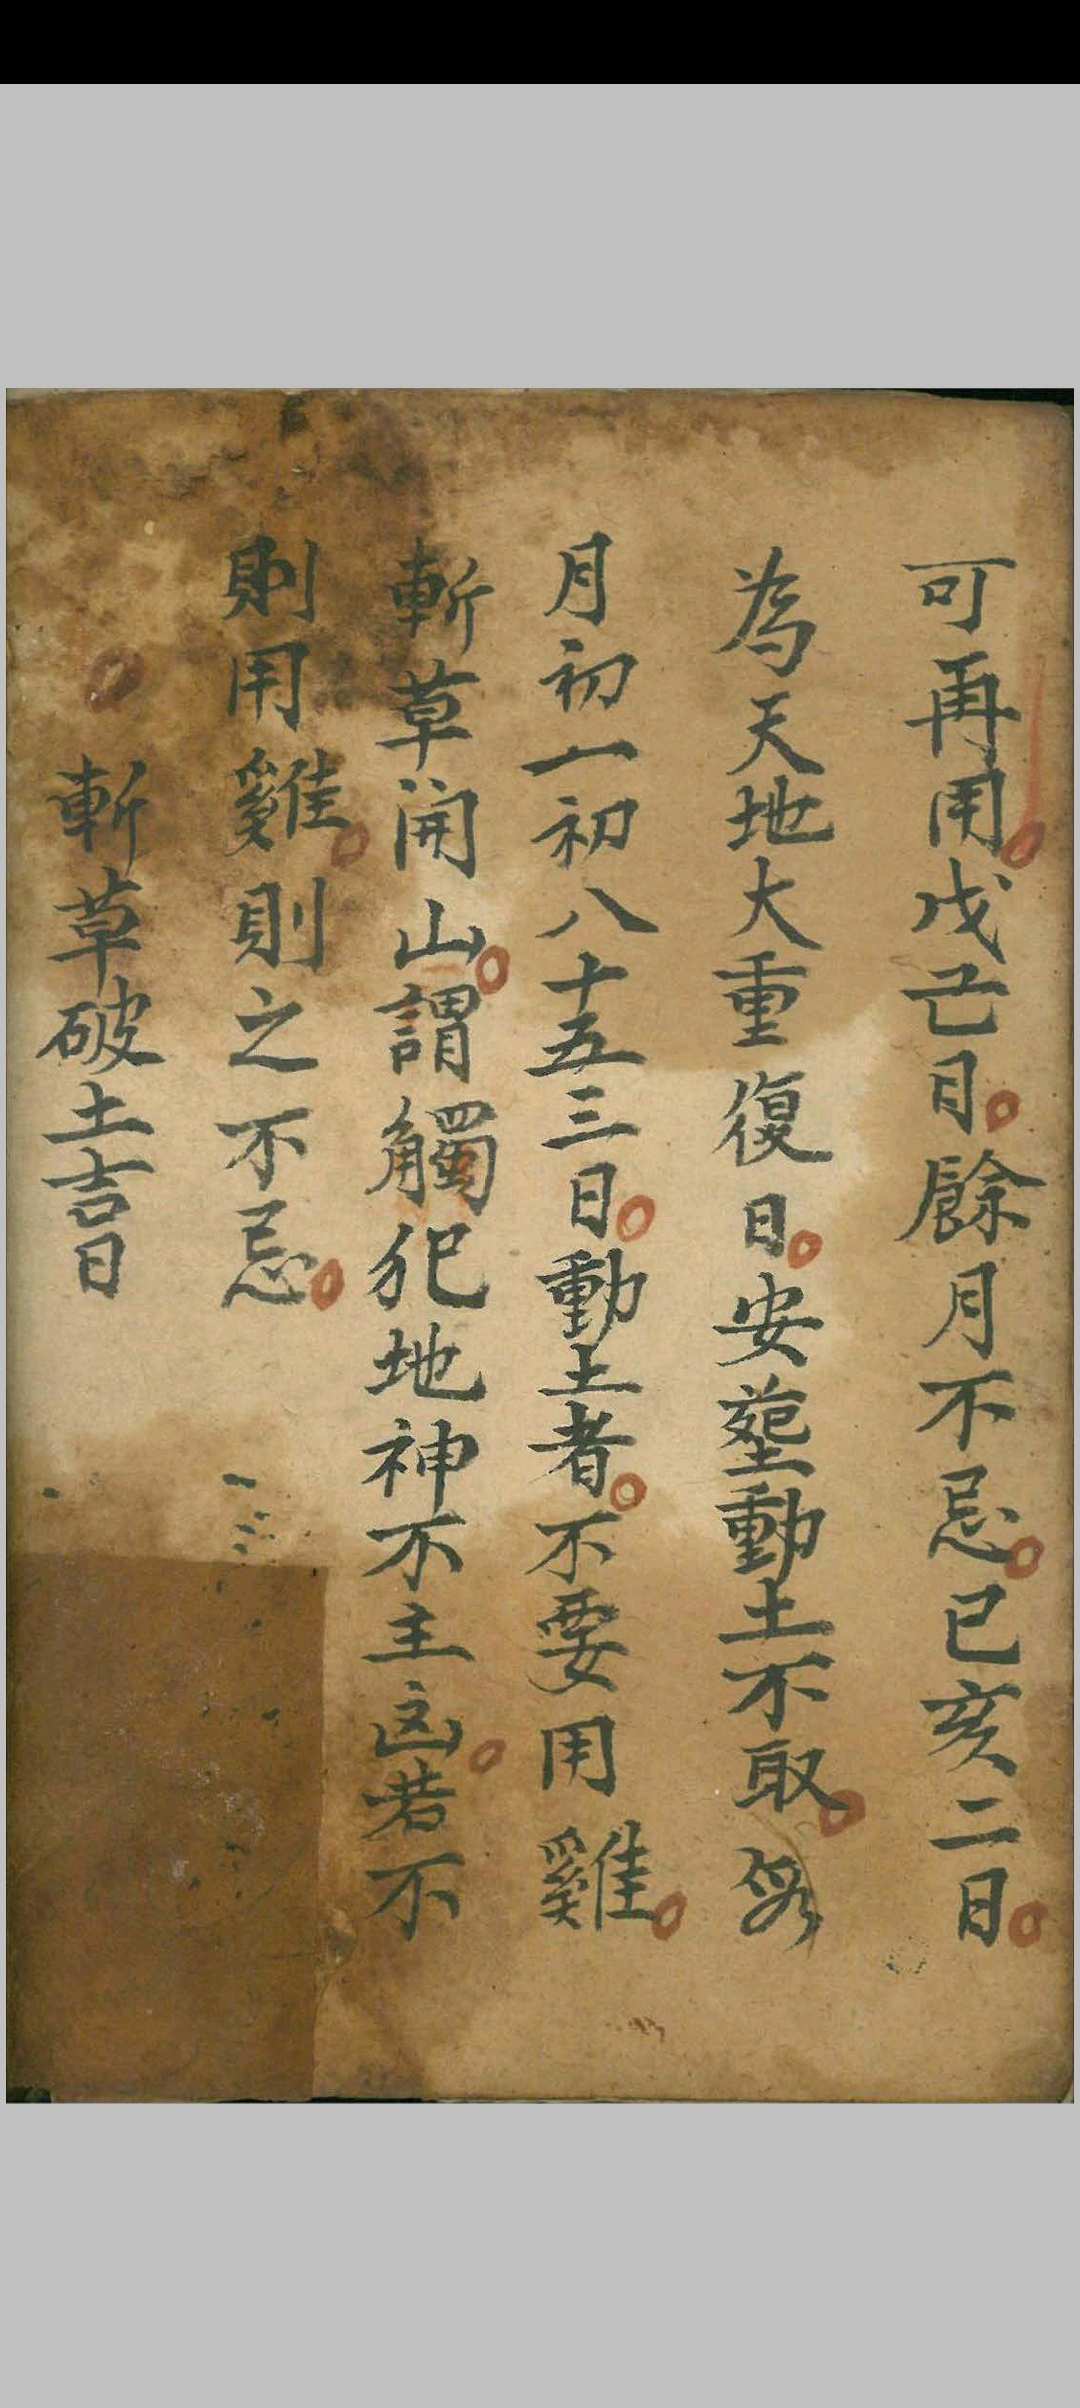 可再用戊己日餘月不忌己亥二日
為天地大重復日安葬動土不取
月初一初八十五三日動土者不要用雞
斬草開山謂觸犯地神不主凶若不
則用雞則之不忌
斬草破土吉日